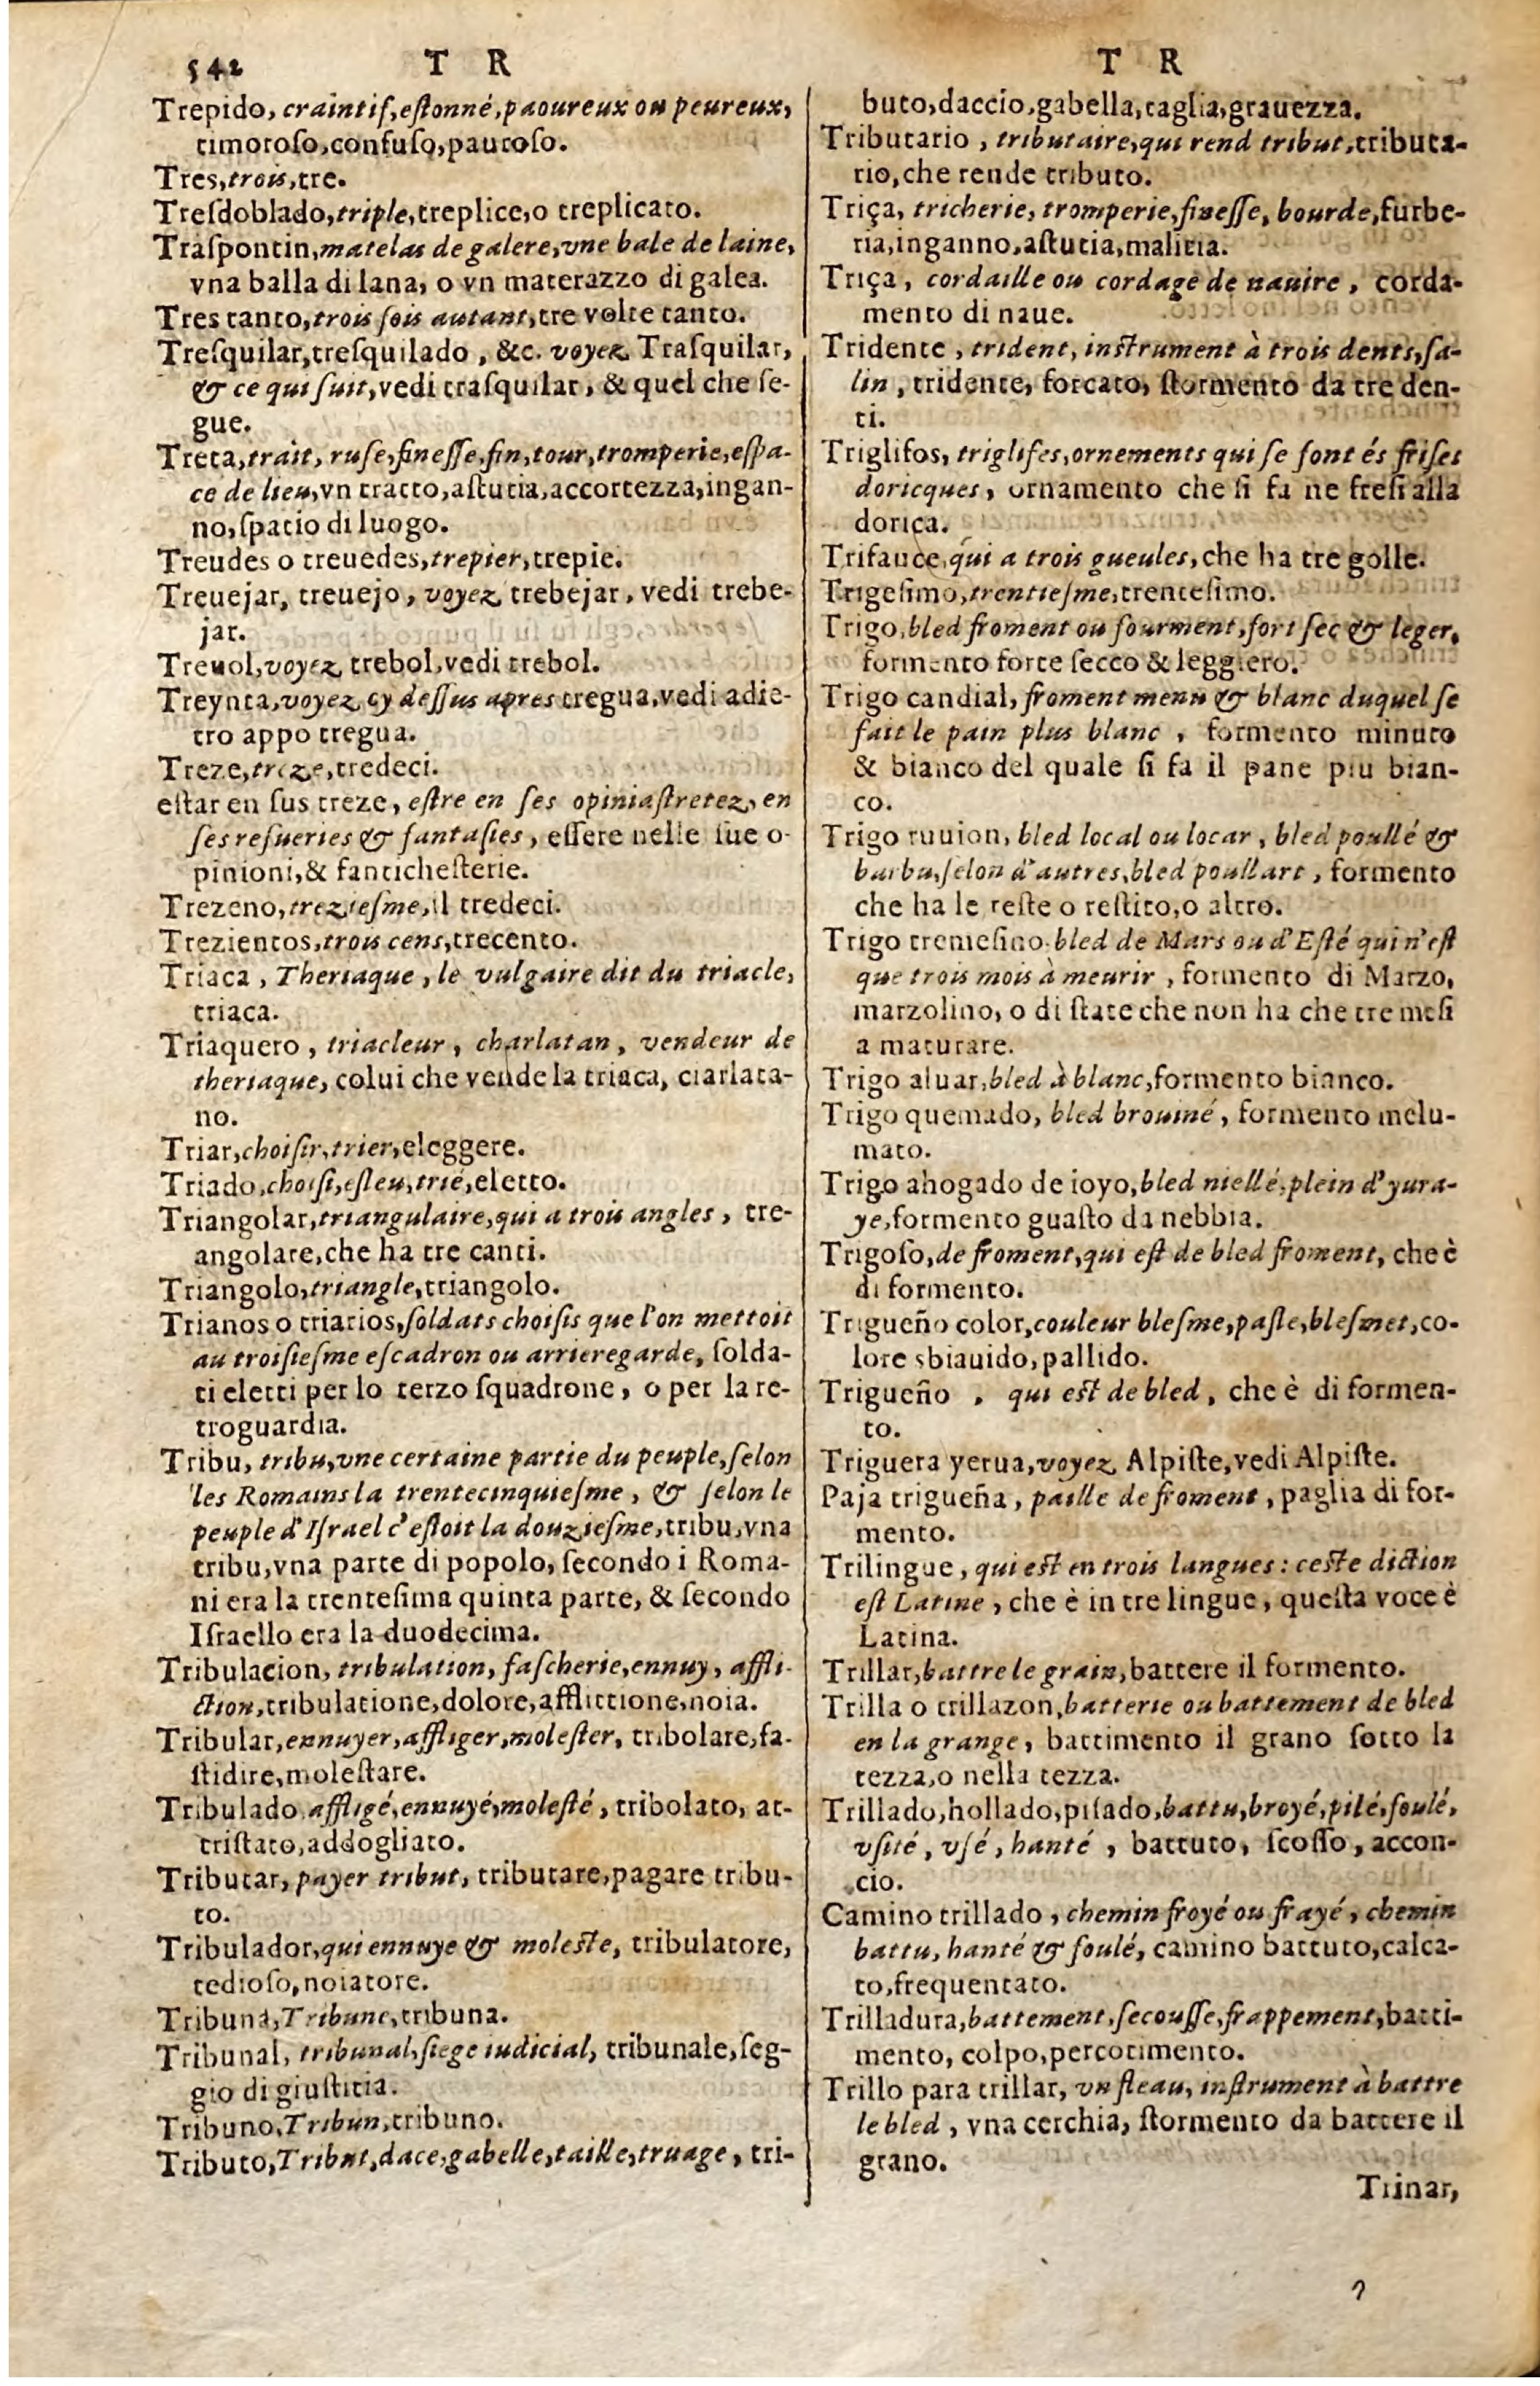 542 T R
Trepido, craintif, eſtonné, paoureux ou peureux,
timoroſo, confuſo, pauroſo.
Tres, trois, tre.
Treſdoblado, triple, treplice, o treplicato.
Traſpontin, matelas de galere, vne bale de laine,
vna balla di lana, o vn materazzo di galea.
Tres tanto, trois fois autant, tre volte tanto.
Treſquilar, treſquilado, &c. voyez Traſquilar,
& ce qui ſuit, vedi traſquilar, & quel che ſe-
gue.
Treta, trait, ruſe, fineſſe, fin, tour, tromperie, eſpa-
ce de lieu, vn tratto, aſtutia, accortezza, ingan-
no, ſpatio di luogo.
Treudes o treuedes, trepier, trepie.
Treuejar, treuejo, voyez trebejar, vedi trebe-
jar.
Treuol, voyez trebol, vedi trebol.
Treynta, voyez cy deſſus apres tregua, vedi adie-
tro appo tregua.
Treze, treze, tredeci.
eſtar en ſus treze, eſtre en ſes opiniaſtretez, en
ſes reſueries & fantaſies, eſſere nelle ſue o-
pinioni, & fanticheſterie.
Trezeno, trezieſme, il tredeci.
Trezientos, trois cens, trecento.
Triaca, Theriaque, le vulgaire dit du triacle,
triaca.
Triaquero, triacleur, charlatan, vendeur de
theriaque, colui che vende la triaca, ciarlata-
no.
Triar, choiſir, trier, eleggere.
Triado, choiſi, eſleu, trié, eletto.
Triangolar, triangulaire, qui a trois angles, tre-
angolare, che ha tre canti.
Triangolo, triangle, triangolo.
Trianos o triarios, ſoldats choiſis que l'on mettoit
au troiſieſme eſcadron ou arrieregarde, ſolda-
ti eletti per lo terzo ſquadrone, o per la re-
troguardia.
Tribu, tribu, vne certaine partie du peuple, ſelon
les Romains la trentecinquieſme, & ſelon le
peuple d'Iſrael c'eſtoit la douzieſme, tribu, vna
tribu, vna parte di popolo, ſecondo i Roma-
ni era la trenteſima quinta parte, & ſecondo
Iſraello era la duodecima.
Tribulacion, tribulation, faſcherie, ennuy, affli-
ction, tribulatione, dolore, afflittione, noia.
Tribular, ennuyer, affliger, moleſter, tribolare, fa-
ſtidire, moleſtare.
Tribulado, affligé, ennuyé, moleſté, tribolato, at-
triſtato, addogliato.
Tributar, payer tribut, tributare, pagare tribu-
to.
Tribulador, qui ennuye & moleſte, tribulatore,
tedioſo, noiatore.
Tribuna, Tribune, tribuna.
Tribunal, tribunal, ſiege iudicial, tribunale, ſeg-
gio di giuſtitia.
Tribuno, Tribun, tribuno.
Tributo, Tribut, dace, gabelle, taille, truage, tri-
T R
buto, daccio, gabella, taglia, grauezza.
Tributario, tributaire, qui rend tribut, tributa-
rio, che rende tributo.
Triça, tricherie, tromperie, fineſſe, bourde, furbe-
ria, inganno, aſtutia, malitia.
Triça, cordaille ou cordage de nauire, corda-
mento di naue.
Tridente, trident, inſtrument à trois dents, ſa-
lin, tridente, forcato, ſtormento da tre den-
ti.
Triglifos, triglifes, ornements qui ſe font és friſes
doricques, ornamento che ſi fa ne freſi alla
dorica.
Trifauce, qui a trois gueules, che ha tre golle.
Trigeſimo, trentieſme, trenteſimo.
Trigo, bled froment ou fourment, fort ſec & leger,
formento forte ſecco & leggiero.
Trigo candial, froment menu & blanc duquel ſe
fait le pain plus blanc, formento minuto
& bianco del quale ſi fa il pane piu bian-
co.
Trigo ruuion, bled local ou locar, bled poullé &
barbu, ſelon d'autres, bled poullart, formento
che ha le reſte o reſtito, o altro.
Trigo tremeſino, bled de Mars ou d'Eſté qui n'eſt
que trois mois à meurir, formento di Marzo,
marzolino, o di ſtate che non ha che tre meſi
a maturare.
Trigo aluar, bled à blanc, formento bianco.
Trigo quemado, bled brouiné, formento melu-
mato.
Trigo ahogado de ioyo, bled niellé, plein d'yura-
ye, formento guaſto da nebbia.
Trigoſo, de froment, qui eſt de bled froment, che è
di formento.
Trigueño color, couleur bleſme, paſle, bleſmet, co-
lore sbiauido, pallido.
Trigueño, qui eſt de bled, che è di formen-
to.
Triguera yerua, voyez Alpiſte, vedi Alpiſte.
Paja trigueña, paille de froment, paglia di for-
mento.
Trilingue, qui eſt en trois langues: ceſte diction
eſt Latine, che è in tre lingue, queſta voce è
Latina.
Trillar, battre le grain, battere il formento.
Trilla o trillazon, batterie ou battement de bled
en la grange, battimento il grano ſotto la
tezza, o nella tezza.
Trillado, hollado, piſado, battu, broyé, pilé, foulé,
vſité, vſé, hanté, battuto, ſcoſſo, accon-
cio.
Camino trillado, chemin froyé ou frayé, chemin
battu, hanté & foulé, camino battuto, calca-
to, frequentato.
Trilladura, battement, ſecouſſe, frappement, batti-
mento, colpo, percotimento.
Trillo para trillar, vn fleau, inſtrument à battre
le bled, vna cerchia, ſtormento da battere il
grano.
Trinar,